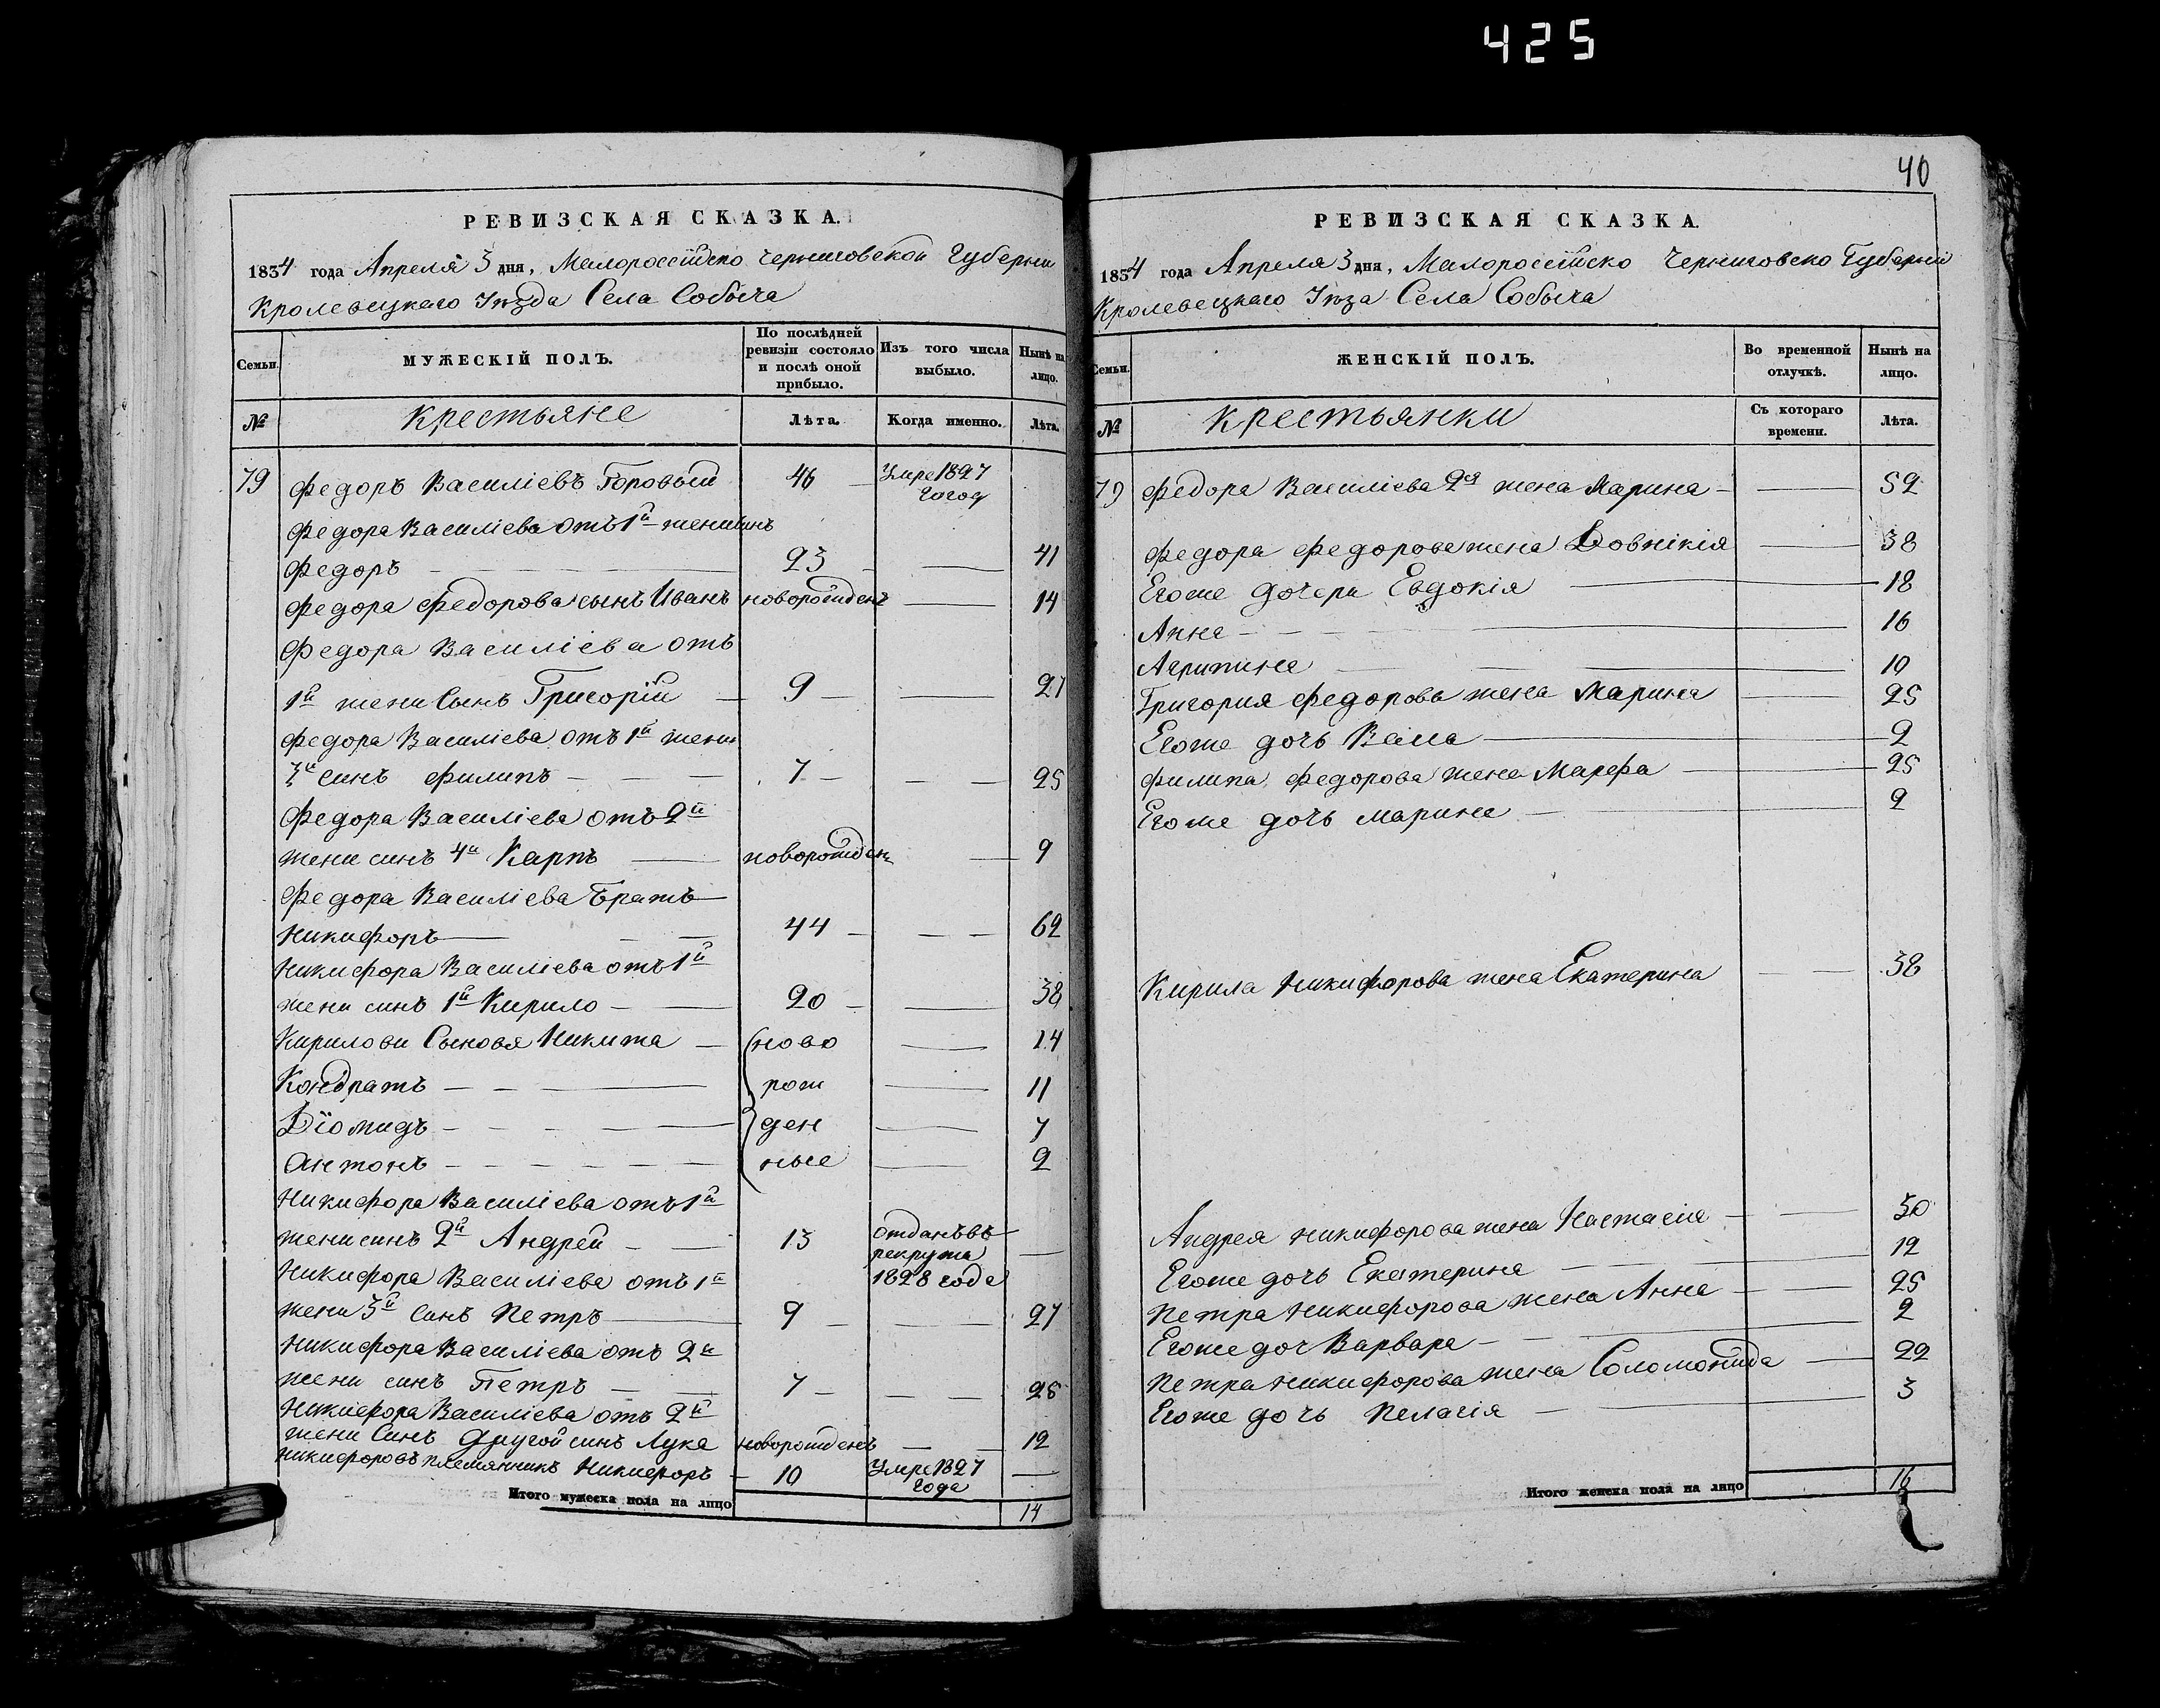 425
РЕВИЗСКАЯ СКАЗКА.
1834 года Апреля 3 дня, Малороссійско Черниговской Губерни
Кролевецкаго Уѣзда Села Собыча
Семьи.
МУЖЕСКІЙ ПОЛЪ.
По послѣдней ревизіи состояло и послѣ оной прибыло.
Изъ того числа выбыло.
Нынѣ на лицо.
№
Крестьяне
Лѣта.
Когда именно.
Лѣта.
79 Федоръ Василіевъ Горовый 46 Умре 1827 гогод
Федора Василіева отъ 1й жени синъ
Федоръ 23 41
Федора Федорова сынъ Иванъ новорожденъ 14
Федора Василіева отъ
1й жени Сынъ Григорій 9 27
Федора Василіева отъ 1й жени
3й синъ Филипъ 7 25
Федора Василіева отъ 2й
жени синъ 4й Карпъ новорожден 9
Федора Василіева Братъ
Никифоръ 44 62
Никифора Василіева отъ 1й
жени синъ 1й Кирило 20 38
Кирилови Сыновя Никита ново 14
Кондратъ рож 11
Діомидъ ден 7
Антонъ ные 2
Никифора Василіева отъ 1й
жени синъ 2й Андрей 13 отданъ въ рекрута
Никифора Василіева отъ 1й 1828 года
жени 3й синъ Петръ 9 27
Никифора Василіева отъ 2й
жени синъ Петръ 7 25
Никифора Василіева отъ 2й
жени Синъ другой синъ Лука новорожденъ 12
Никифоровъ племянникъ Никифоръ 10 Умре 1827 года
Итого мужеска пола на лицо 14
40
РЕВИЗСКАЯ СКАЗКА.
1834 года Апреля 3 дня, Малороссійско Черниговско Губерніи
Кролевецкаго Уѣза Села Собыча
Семьи.
ЖЕНСКІЙ ПОЛЪ.
Во временной отлучкѣ.
Нынѣ на лицо.
№
Крестьянки
Съ котораго времени.
Лѣта.
79 Федора Василіева 2я жена Марина 52
Федора Федорова жена Довникія 38
Егоже дочери Евдокія 18
Анна 16
Агрипина 10
Григория Федорова жена Марина 25
Егоже дочь Васса 2
Филипа Федорова жена Марфа 25
Егоже дочь марина 2
Кирила Никифорова жена Екатерина 38
Андрея Никифорова жена Настасия 30
Егоже дочь Екатерина 12
Петра Никифорова жена Анна 25
Егоже доч Варвара 2
Петра Никифорова жена Соломонида 22
Егоже дочь Пелагія 3
Итого женска пола на лицо 16